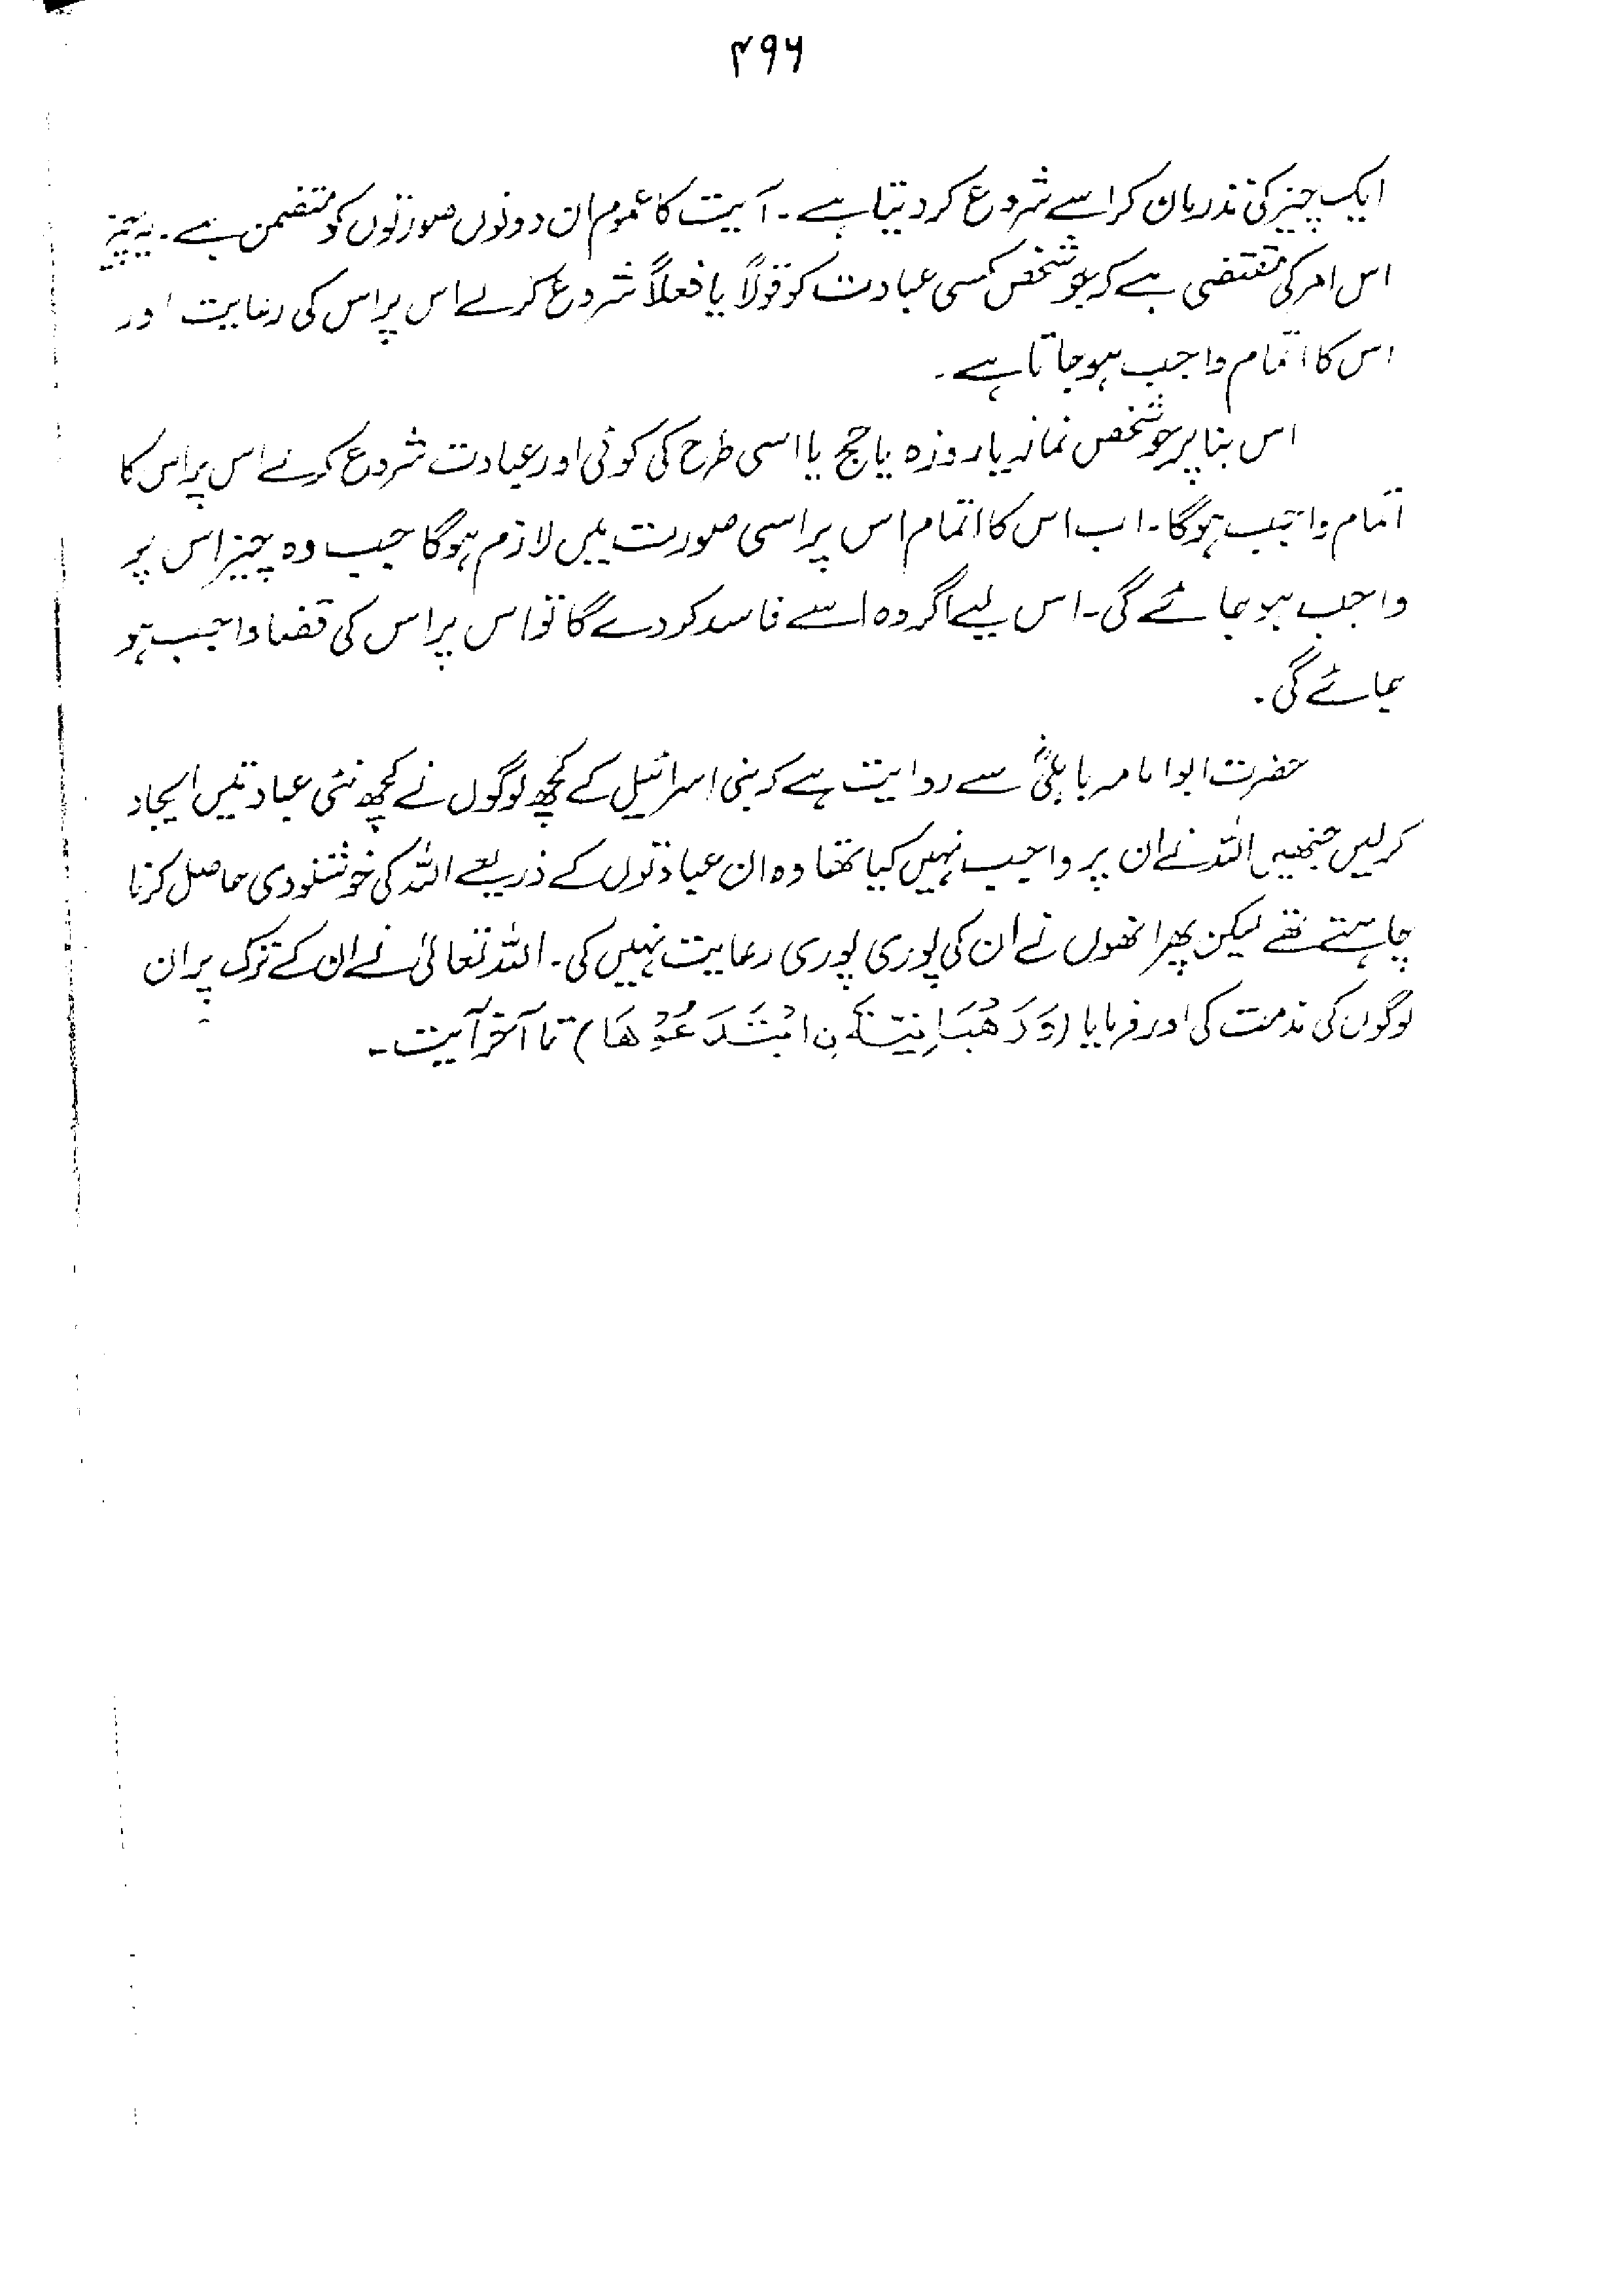 ۴۹۶
ایک چیز کی نذر مان کر اسے شروع کر دیتا ہے۔ آیت کا عموم ان دونوں صورتوں کو متضمن ہے۔ یہ چیز
اس امر کی مقتضی ہے کہ جو شخص کسی عبادت کو قولاً یا فعلاً شروع کرلے اس پر اس کی رعایت اور
اس کا اتمام واجب ہو جاتا ہے۔
اس بنا پر جو شخص نماز یا روزہ یا حج یا اسی طرح کی کوئی اور عبادت شروع کرلے اس پر اس کا
اتمام واجب ہوگا۔ اب اس کا اتمام اس پر اسی صورت میں لازم ہوگا جب وہ چیز اس پر
واجب ہو جائے گی۔ اس لیے اگر وہ اسے فاسد کردے گا تو اس پر اس کی قضا واجب ہو
جائے گی۔
حضرت ابوامامہ باہلیؓ سے روایت ہے کہ بنی اسرائیل کے کچھ لوگوں نے کچھ نئی عبادتیں ایجاد
کرلیں جنھیں اللہ نے ان پر واجب نہیں کیا تھا وہ ان عبادتوں کے ذریعے اللہ کی خوشنودی حاصل کرنا
چاہتے تھے لیکن پھر انھوں نے ان کی پوری پوری رعایت نہیں کی۔ اللہ تعالیٰ نے ان کے ترک پر ان
لوگوں کی مذمت کی اور فرمایا (وَرَهْبَانِيَّةَ نِ ابْتَدَعُوْهَا) تا آخر آیت۔